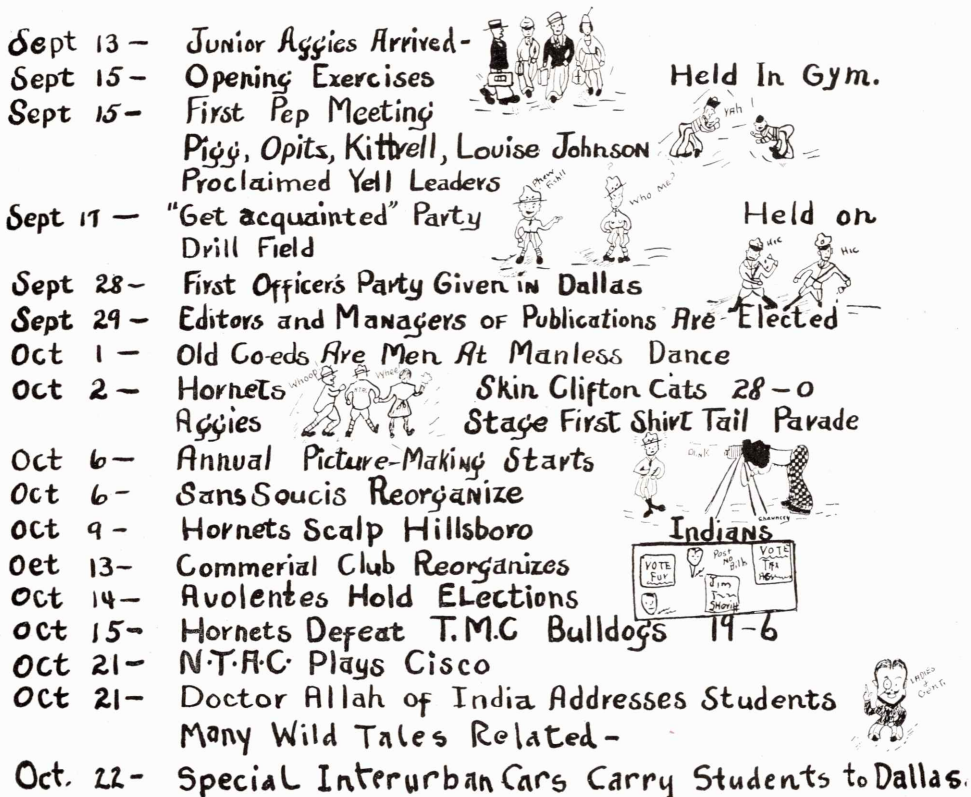 Sept 13 - Junior Aggies Arrived -
Sept 15 - Opening Exercises Held In Gym.
Sept 15 - First Pep Meeting
Yah!
Pigg, Opits, Kittrell, Louise Johnson
Proclaimed Yell Leaders
Phew
Who Me?
Sept 17 - "Get acquainted" Party Held on
Drill Field
Hic
Hic
Sept 28 - First Officer's Party Given in Dallas
Sept 29 - Editors and Managers of Publications Are Elected
Oct 1 - Old Co-eds Are Men At Manless Dance
Oct 2 - Hornets Skin Clifton Cats 28-0
Whoop
Whee
Aggies Stage First Shirt Tail Parade
Oct 6 - Annual Picture-Making Starts
Oct 6 - Sans Soucis Reorganize
Chauncey
Oct 9 - Hornets Scalp Hillsboro Indians
Oct 13 - Commerial Club Reorganizes
VOTE
Fur
Post
No
Bills
VOTE
Jim
Oct 14 - Avolentes Hold Elections
Oct 15 - Hornets Defeat T.M.C Bulldogs 19-6
Oct 21 - N.T.A.C. Plays Cisco
Oct 21 - Doctor Allah of India Addresses Students
Ladies
+
Gent.
Many Wild Tales Related -
Oct. 22 - Special Interurban Cars Carry Students to Dallas.